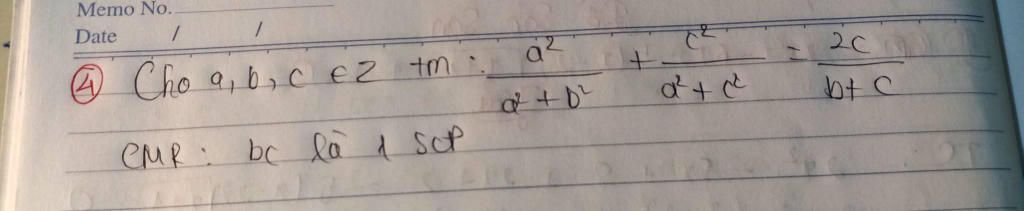 Memo No.
Date / /
④ Cho a, b, c ∈ Z tm: a²/(a²+b²) + c²/(a²+c²) = 2c/(b+c)
CMR: bc là 1 SCP